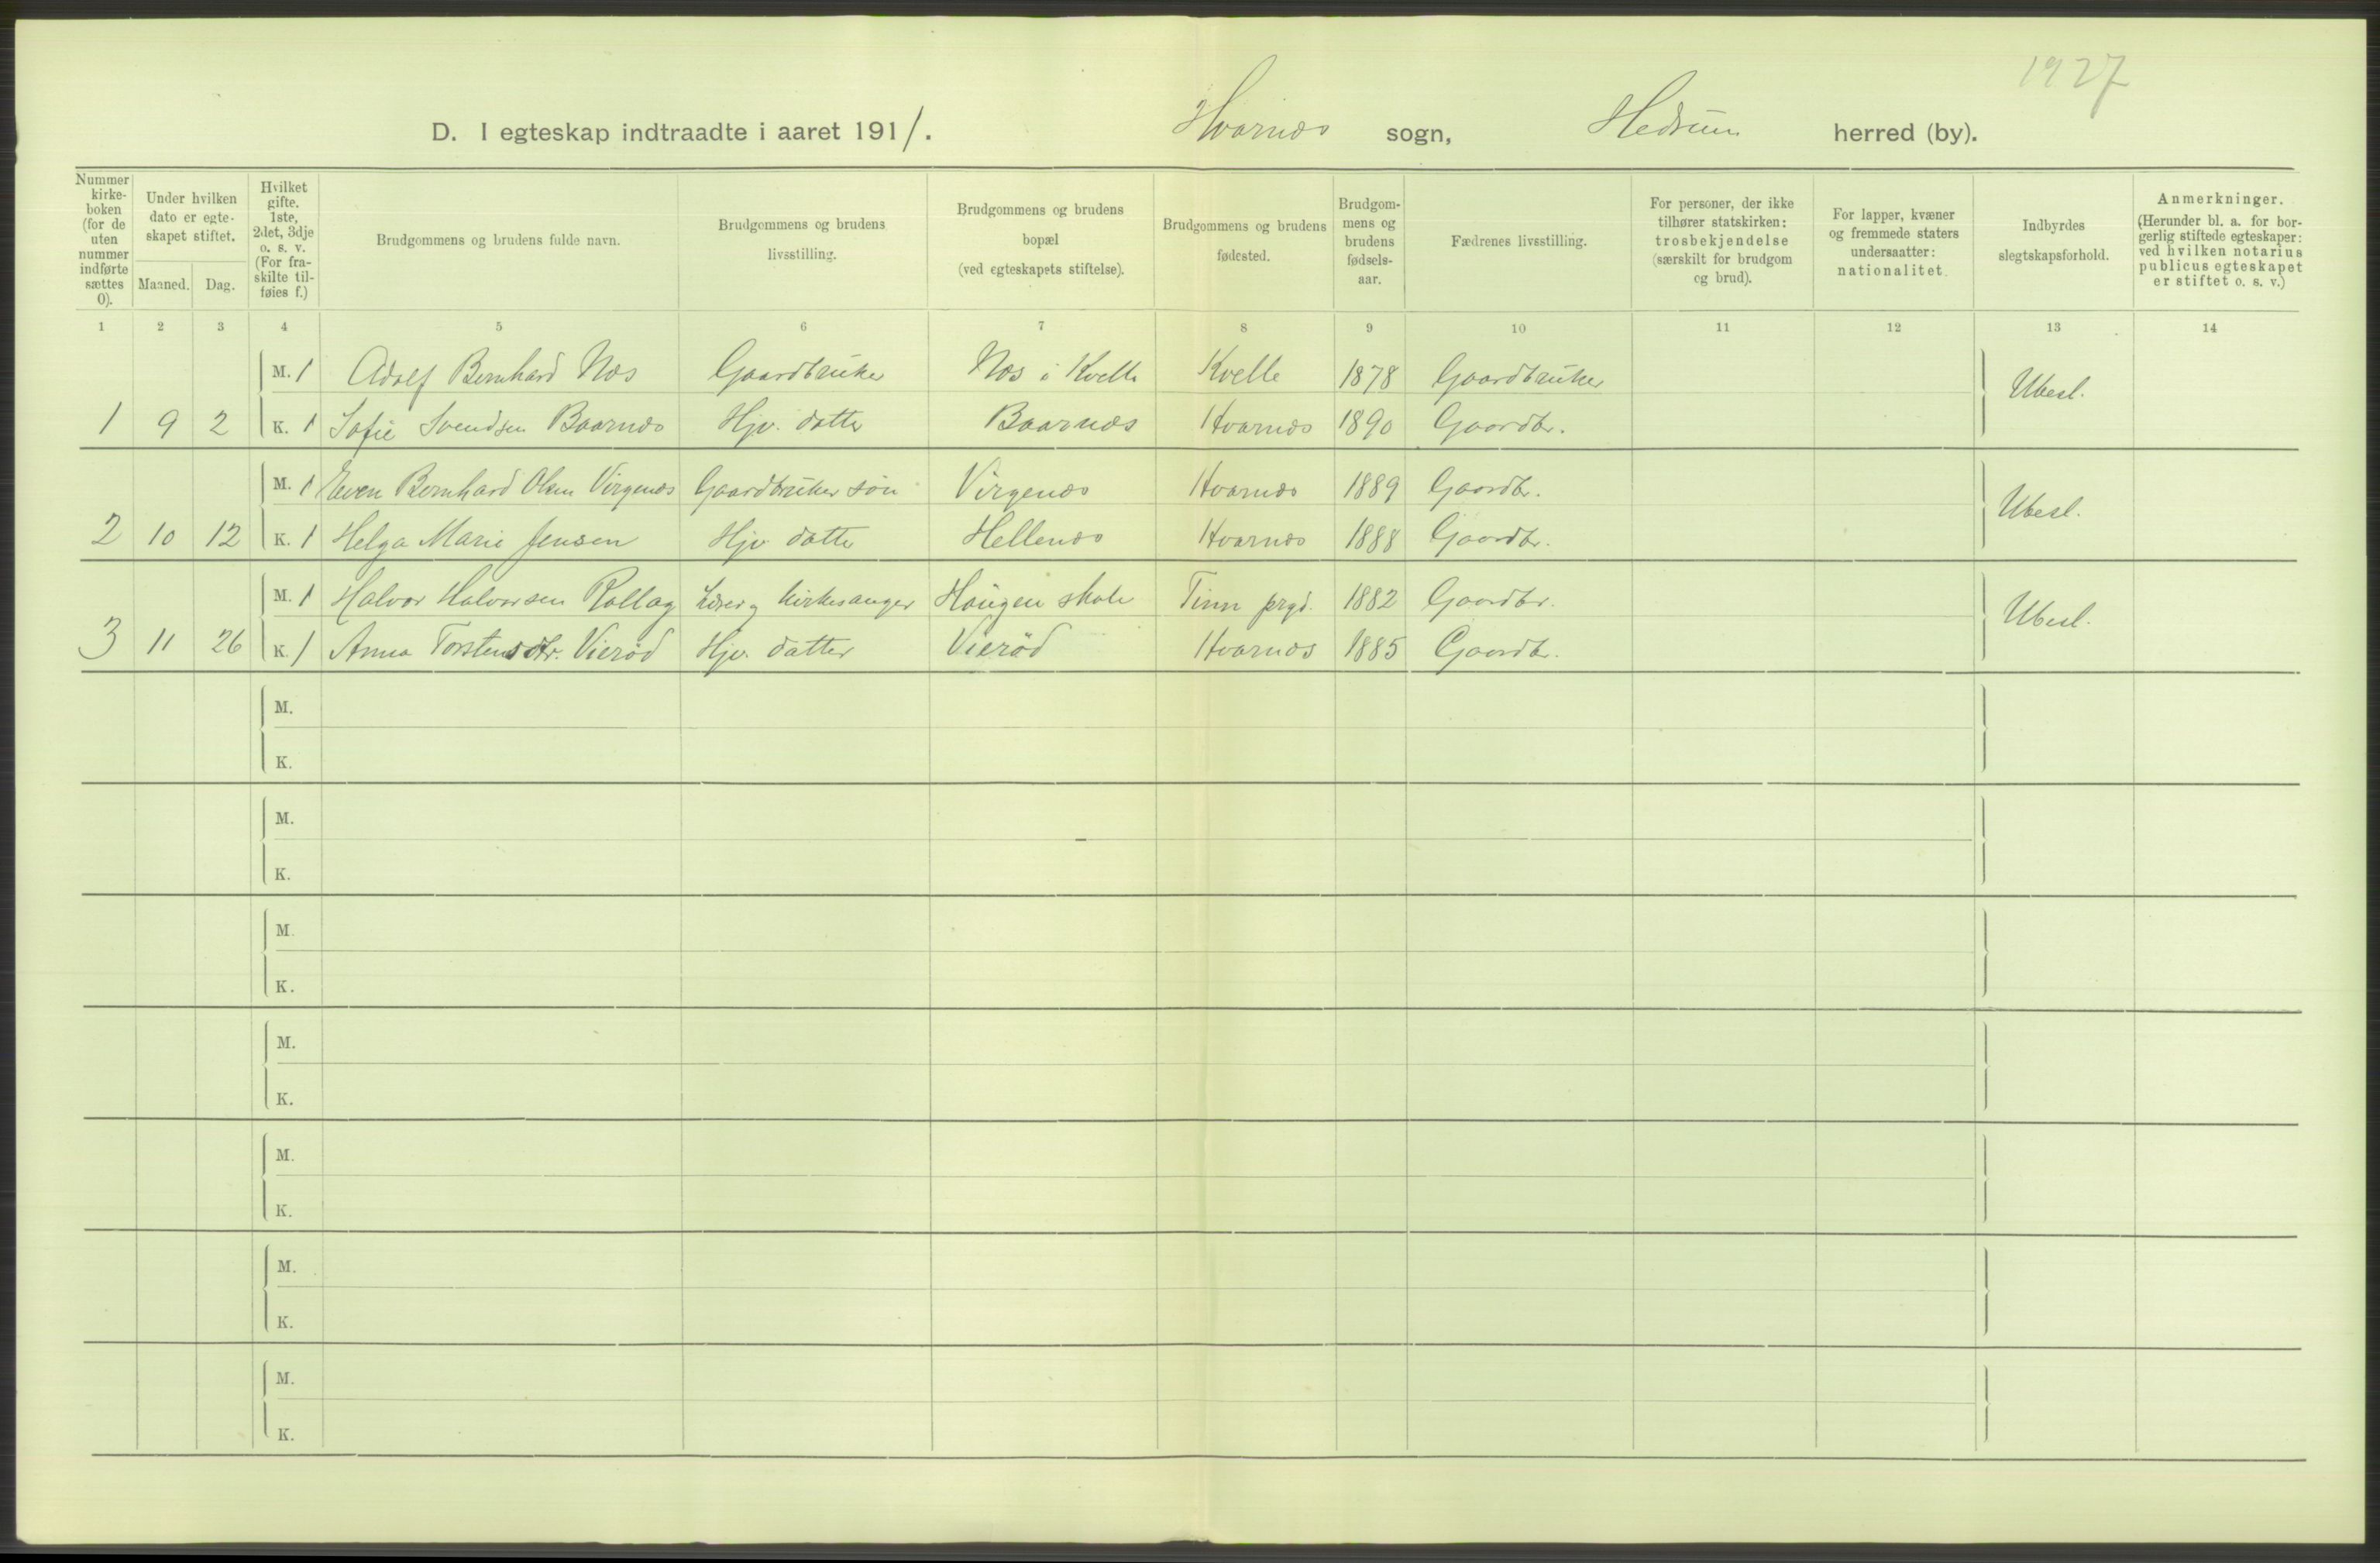 1927
D. I egteskap indtraadte i aaret 1911. Hvarnæs sogn, Hedrum herred (by).
Nummer kirke-boken (for de uten nummer indførte sættes 0). | Under hvilken dato er egte-skapet stiftet. Maaned. Dag. | Hvilket gifte. 1ste, 2det, 3dje o. s. v. (For fra-skilte til-føies f.) | Brudgommens og brudens fulde navn. | Brudgommens og brudens livsstilling. | Brudgommens og brudens bopæl (ved egteskapets stiftelse). | Brudgommens og brudens fødested. | Brudgom-mens og brudens fødsels-aar. | Fædrenes livsstilling. | For personer, der ikke tilhører statskirken: trosbekjendelse (særskilt for brudgom og brud). | For lapper, kvæner og fremmede staters undersaatter: nationalitet. | Indbyrdes slegtskapsforhold. | Anmerkninger. (Herunder bl. a. for bor-gerlig stiftede egteskaper: ved hvilken notarius publicus egteskapet er stiftet o. s. v.)
1 2 3 4 5 6 7 8 9 10 11 12 13 14
M. 1 Adolf Bernhard Næs Gaardbruker Næs i Kvelle Kvelle 1878 Gaardbruker Ubesl.
1 9 2 K. 1 Sofie Svendsen Baarnæs Hjv. datter Baarnæs Hvarnæs 1890 Gaardbr.
M. 1 Even Bernhard Olsen Virgenæs Gaardbruker søn Virgenæs Hvarnæs 1889 Gaardbr. Ubesl.
2 10 12 K. 1 Helga Marie Jensen Hjv datter Hellenæs Hvarnæs 1888 Gaardbr.
M. 1 Halvor Halvorsen Rollag Lærer og kirkesanger Haugen skole Tinn prgd. 1882 Gaardbr. Ubesl.
3 11 26 K. 1 Anna Torstensdtr. Vierød Hjv. datter Vierød Hvarnæs 1885 Gaardbr.
M.
K.
M.
K.
M.
K.
M.
K.
M.
K.
M.
K.
M.
K.